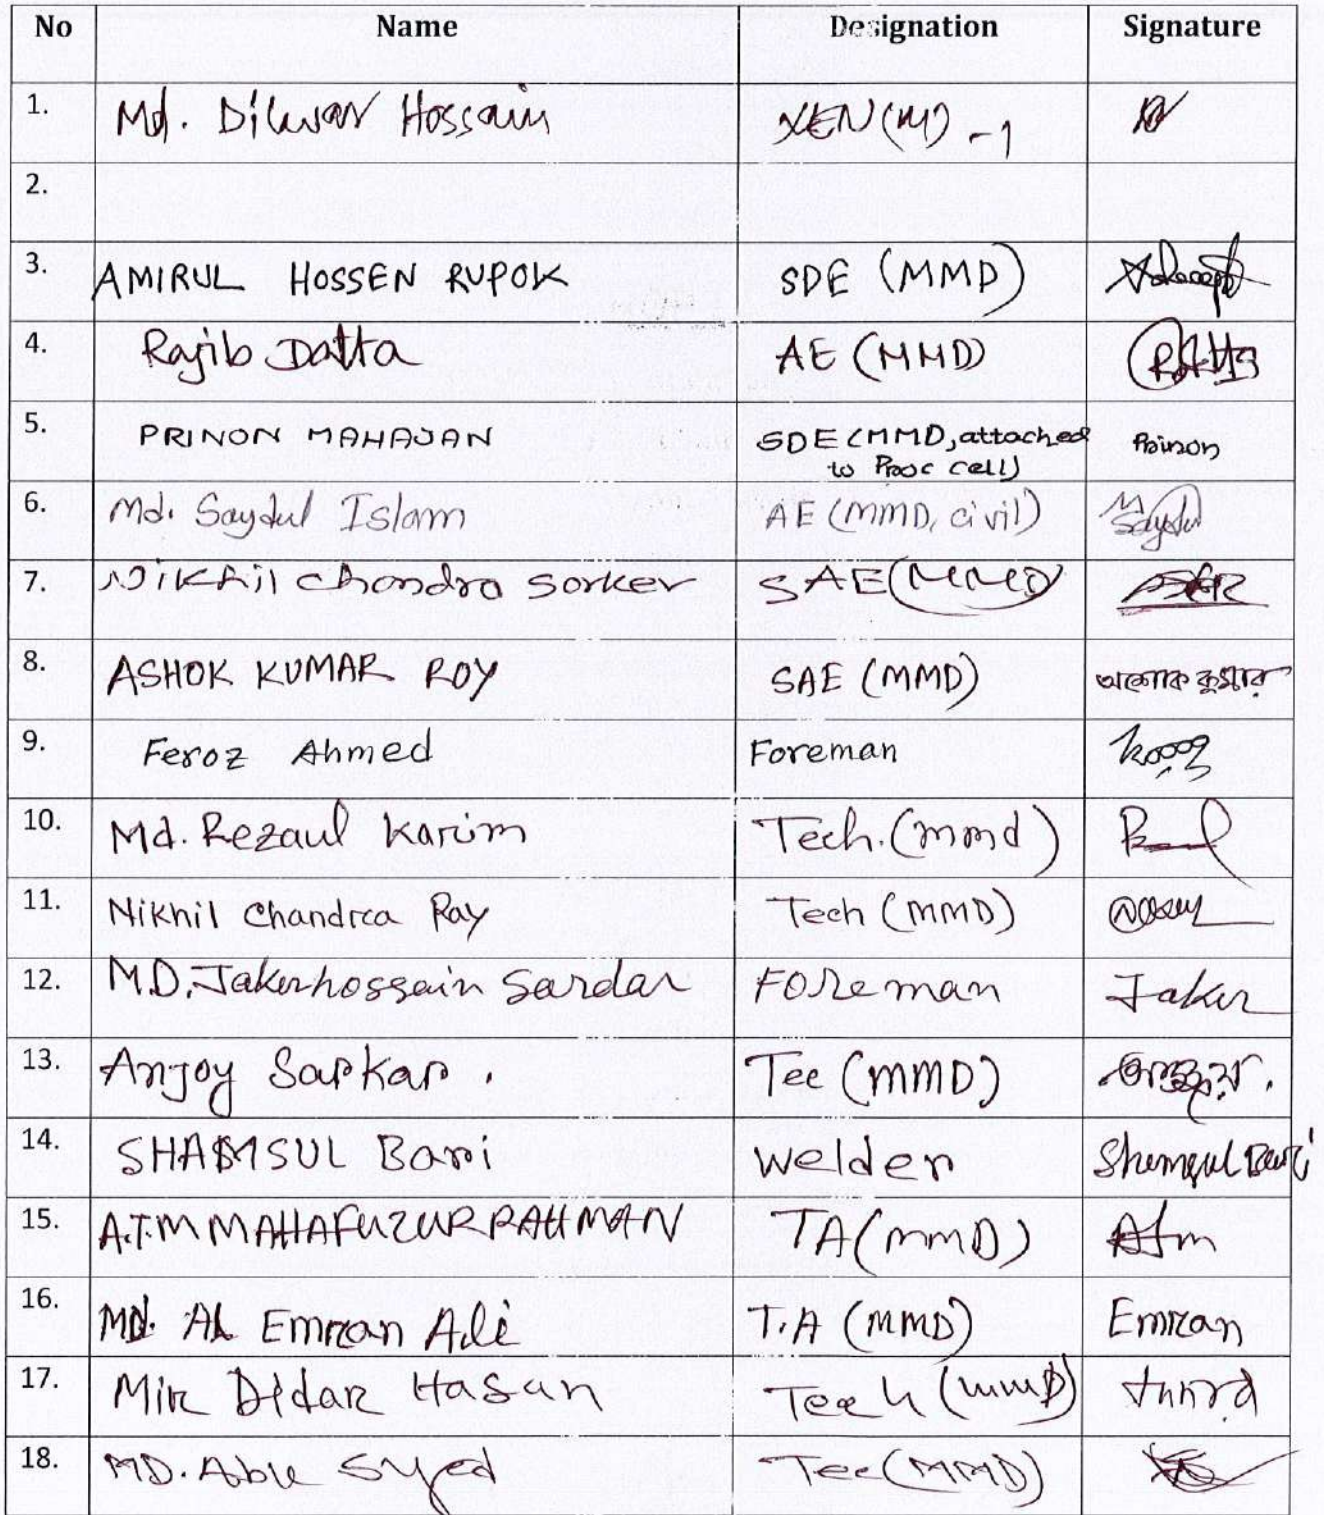 No Name Designation Signature
1. Md. Dilwar Hossain XEN(M)-1
2.
3. AMIRUL HOSSEN RUPOK SDE (MMD)
4. Rajib Datta AE (MMD)
5. PRINON MAHAJAN SDE (MMD, attached Prinon
to Proc cell)
6. Md. Saydul Islam AE (MMD, civil) Saydul
7. Nikhil chondro sorker SAE(MMD)
8. ASHOK KUMAR ROY SAE (MMD) অশোক কুমার
9. Feroz Ahmed Foreman
10. Md. Rezaul Karim Tech. (mmd)
11. Nikhil Chandra Ray Tech (MMD)
12. M.D. Jakerhossain Sardar Foreman Jaker
13. Anjoy Sarkar. Tec (MMD)
14. SHAMSUL Bari welder Shamsul Bari
15. A.T.M MAHAFUZUR RAHMAN TA(mmD) Atm
16. MD. AL Emran Ali T.A (MMD) Emran
17. Mir Didar Hasan Tech (mmD)
18. MD. Abu Syed Tec (MMD)